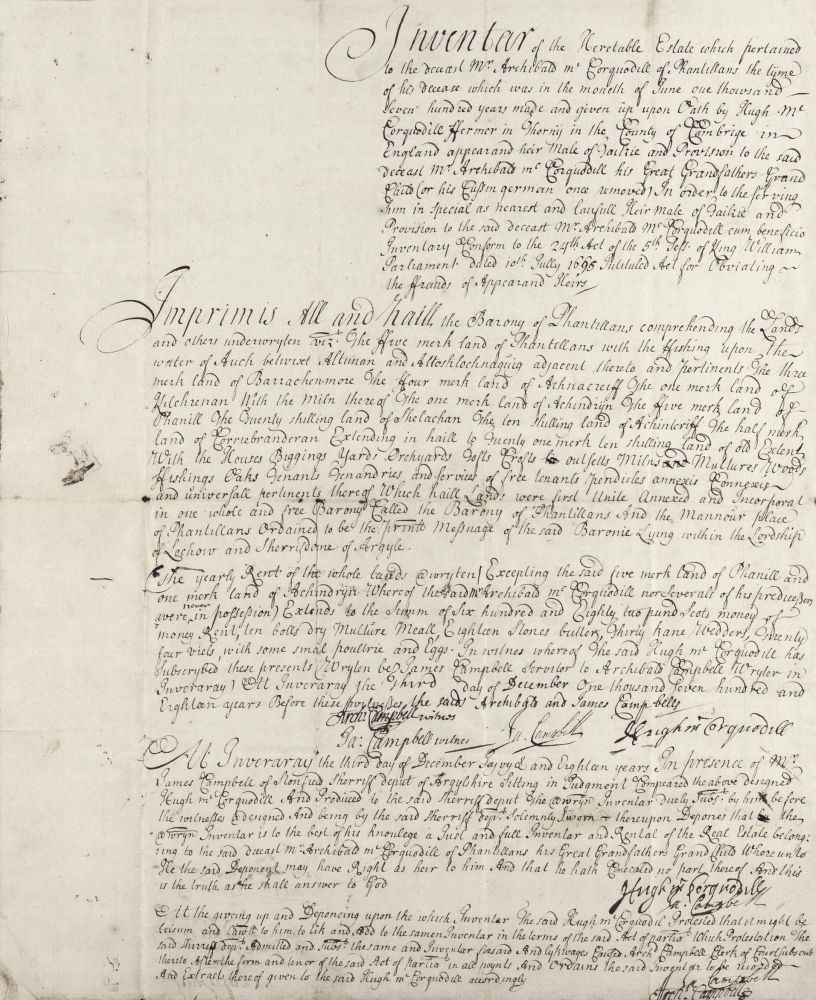 Inventar of the Heretable Estate which pertained
to the deceast Mr. Archibald mc Corquodill of Phantillans the tyme
of his decease which was in the moneth of June one thousand
seven hundred years made and given up upon Oath by Hugh Mc
Corquodill ffermer in Thorny in the County of Cambrige in
England appearand heir Male of Tailzie and Provision to the said
deceast Mr. Archibald mc Corquodill his Great Grandfathers Grand
Child (or his Cussin german once removed) In order to the serving
him in special as nearest and laufull Heir Male of Tailzie and
Provision to the said deceast Mr. Archibald Mc Corquodill cum beneficio
Inventarij Conform to the 24th Act of the 5th Sess: of King William
Parliament dated 10th Jully 1695 Intituled Act for Obviating
the ffrauds of Appearand Heirs
Imprimis All and haill the Barony of Phantillans comprehending the Lands
and others underwrylen vizt. The ffive merk land of Phantillans with the ffishing upon the
water of Auch betwixt Altunan and Altoshlochnaguig adjacent thereto and pertinents The three
merk land of Barrachenmore The ffour merk land of Achnacreiff The one merk land of
Kilchrenan With the Miln thereof The one merk land of Achindryn The ffive merk land of
Phanill The Twenty shilling land of Shelachan The ten shilling land of Achinteriff The half merk
land of Corriebranderan Extending in haill to Twenty one merk ten shilling land of old Extent
With the Houses Biggings Yards Orchyards Tofts Crofts outfells Milns and Multures Woods
ffishings Oaks Tenants Tenandries and services of free tenants pendicles annexis Connexis
and universall pertinents thereof Which haill Lands were first Unite Annexed and Incorporat
in one whole and free Barony Called the Barony of Phantillans And the Mannour place
of Phantillans Ordained to be the prinle Messuage of the said Baronie Lying within the Lordship
of Lochow and Sherrifdome of Argyle.
(The yearly Rent of the whole lands @wryten) Excepting the said five merk land of Phanill and
one merk land of Achindryn Whereof the said Mr Archibald mc Corquodill nor severall of his predicessors
were never in possession) Extends to the summ of Six hundred and Eighty two pund Scots money of
money Rent, ten bolls dry Multure Meall, Eighteen Stones butter, Thirty kane Wedders, Twenty
four viels, with some small poultrie and Eggs. In witnes wherof The said Hugh mc Corquodill has
subscrybed these presents (Wrylen be James Campbell Servitor to Archibald Campbell Wryler in
Inveraray) At Inveraray the Third day of December One thousand Seven hundred and
Eighteen years Before these Witnesses, the said Archibald and James Campbells
Arch: Campbell witnes
Ja: Campbell witnes Ja. Campbell Hugh mc Corquodill
At Inveraray the third day of December Jajvyd and Eighteen years In presence of Mr.
James Campbell of Stonfield Sherriff deput of Argyllshire Sitting in Judgment Compeared the above designed
Hugh mc Corquodill And Produced to the said Sherriff deput The @wryn Inventar Duely Subst. by him before
the witnesses @designed And being by the said Sherriff dept. Solemnly Sworn thereupon Depones that the
@wryn Inventar is to the best of his knowlege a Just and full Inventar and Rental of the Real Estate belong:
:ing to the said deceast mr Archibald mc Corquodill of Phantillans his Great Grandfathers Grand Child Whereunto
He the said Deponent may have Right as heir to him And that he hath Concealed no part thereof And this
is the truth as he shall answer to God
Hugh mc Corquodill
Ja. Campbell
At the giveing up and Deponeing upon the which Inventar The said Hugh mc Corquodil Protested that it might be
leisum and lawll to him to Eik and Add to the samen Inventar in the terms of the said Act of partiat Which Protestation The
said Shirriff dept. Admitted and Subst. the same and Inventar forsaid And lykwayes Caused Arch: Campbell Clerk of Court subscribe
thereto After the form and tenor of the said Act of Partiat in all poynts And Ordains the said Inventar to be recorded
And Extracts thereof given to the said Hugh mc Corquodill accordingly
Ja. Campbell
Arch: Campbell